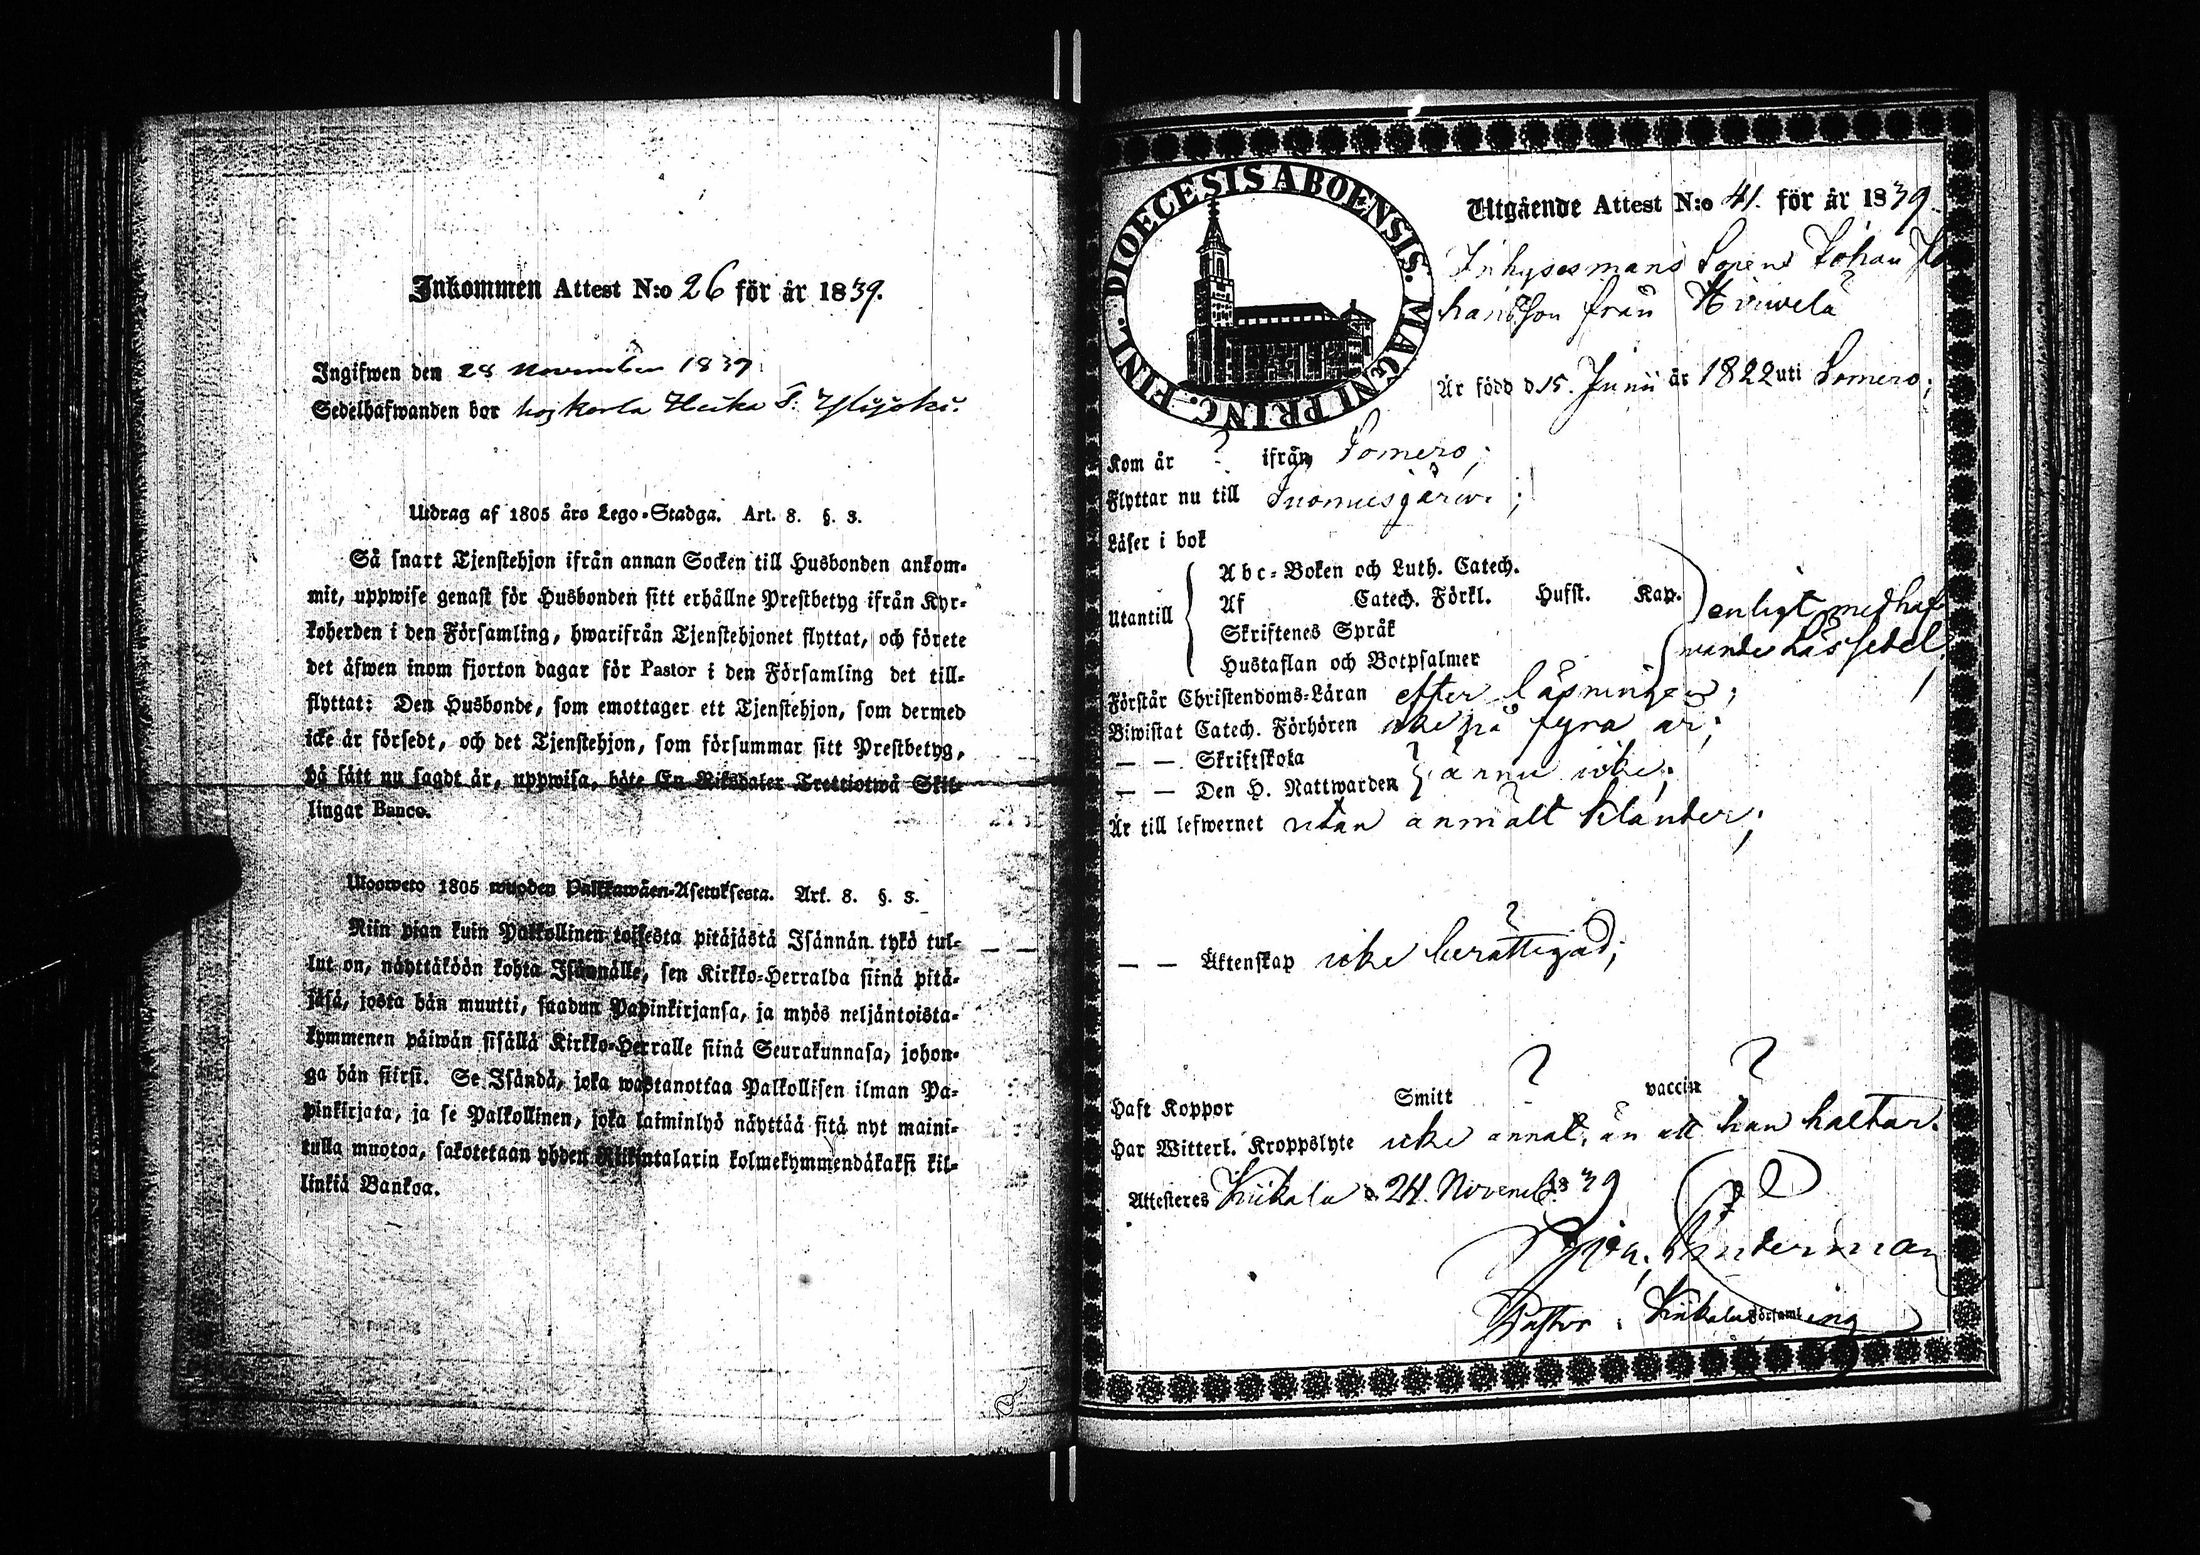 Inkommen Attest N:o 26 för år 1839.
Ingifwen den 28 November 1839
Sedelhafwanden bor hos
Utdrag af 1805 års Lego-Stadga. Art. 8. §. 3.
Så snart Tjenstehjon ifrån annan Socken till Husbonden ankom-
mit, uppwise genast för Husbonden sitt erhållne Prestbetyg ifrån Kyr-
koherden i den Församling, hwarifrån Tjenstehjonet flyttat, och förete
det äfwen inom fjorton dagar för Pastor i den Församling det till-
flyttat: Den Husbonde, som emottager ett Tjenstehjon, som dermed
icke är försedt, och det Tjenstehjon, som försummar sitt Prestbetyg,
på sätt nu sagdt är, uppwisa, böte En Riksdaler Trettiotwå Skil-
lingar Banco.
Uloosweto 1805 wuoden Palkkawäen-Asetuksesta. Art. 8. §. 3.
Niin pian kuin Palkollinen toisesta pitäjästä Isännän tykö tul-
lut on, näyttäköön kohta Isännälle, sen Kirkko-Herralda siinä pitä-
jäsä, josta hän muutti, saadun Papinkirjansa, ja myös neljäntoista-
kymmenen päiwän sisällä Kirkko-Herralle siinä Seurakunnasa, johon-
ga hän siirsi. Se Isändä, joka wastanottaa Palkollisen ilman Pa-
pinkirjata, ja se Palkollinen, joka laiminlyö näyttää sitä nyt maini-
tulla muotoa, sakotetaan yhden Riikintalarin kolmekymmendäkaksi kil-
linkiä Bankoa.
DIOECESIS ABOENSIS. MAGNI PRINC. FINL.
Utgående Attest N:o 41. för år 1839.
Inhysesmans Sonen Johan Jo
hansson från Hirwelä
Är född d 15. Junii år 1822 uti Somero;
Kom år ? ifrån Somero;
Flyttar nu till Suomusjärwi;
Läser i bok
Abc-Boken och Luth. Catech.
Utantill Af Catech. Förkl. Hufst. Kap. enligt medhaf
Skriftenes Språk wande Läs sedel,
Hustaflan och Botpsalmer
Förstår Christendoms-Läran efter läsningen;
Biwistat Catech. Förhören icke på fyra år;
— — Skriftskola
— — Den H. Nattwarden ännu icke;
Är till lefwernet utan anmält klander;
— — Äktenskap icke berättigad;
Haft Koppor Smitt ? vaccin ?
Har Witterl. Kroppslyte icke annat, än att han haltar.
Attesteres Kiikala d. 24 Novemb. 1839
Pastor i Kiikala Församling